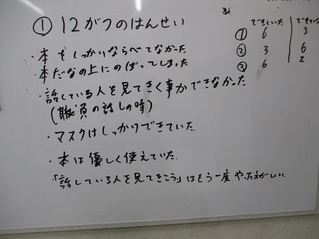 ① 12がつのはんせい
・本をしっかりならべてなかった
・本だなの上にのぼってしまった
・話している人を見てきく事ができなかった
(職員の話しの時)
・マスクはしっかりできていた
・本は優しく使えていた
「話している人を見てきこう」はもう一度やった方がいい。
できていた できていない
① 6 3
② 3 6
③ 6 2